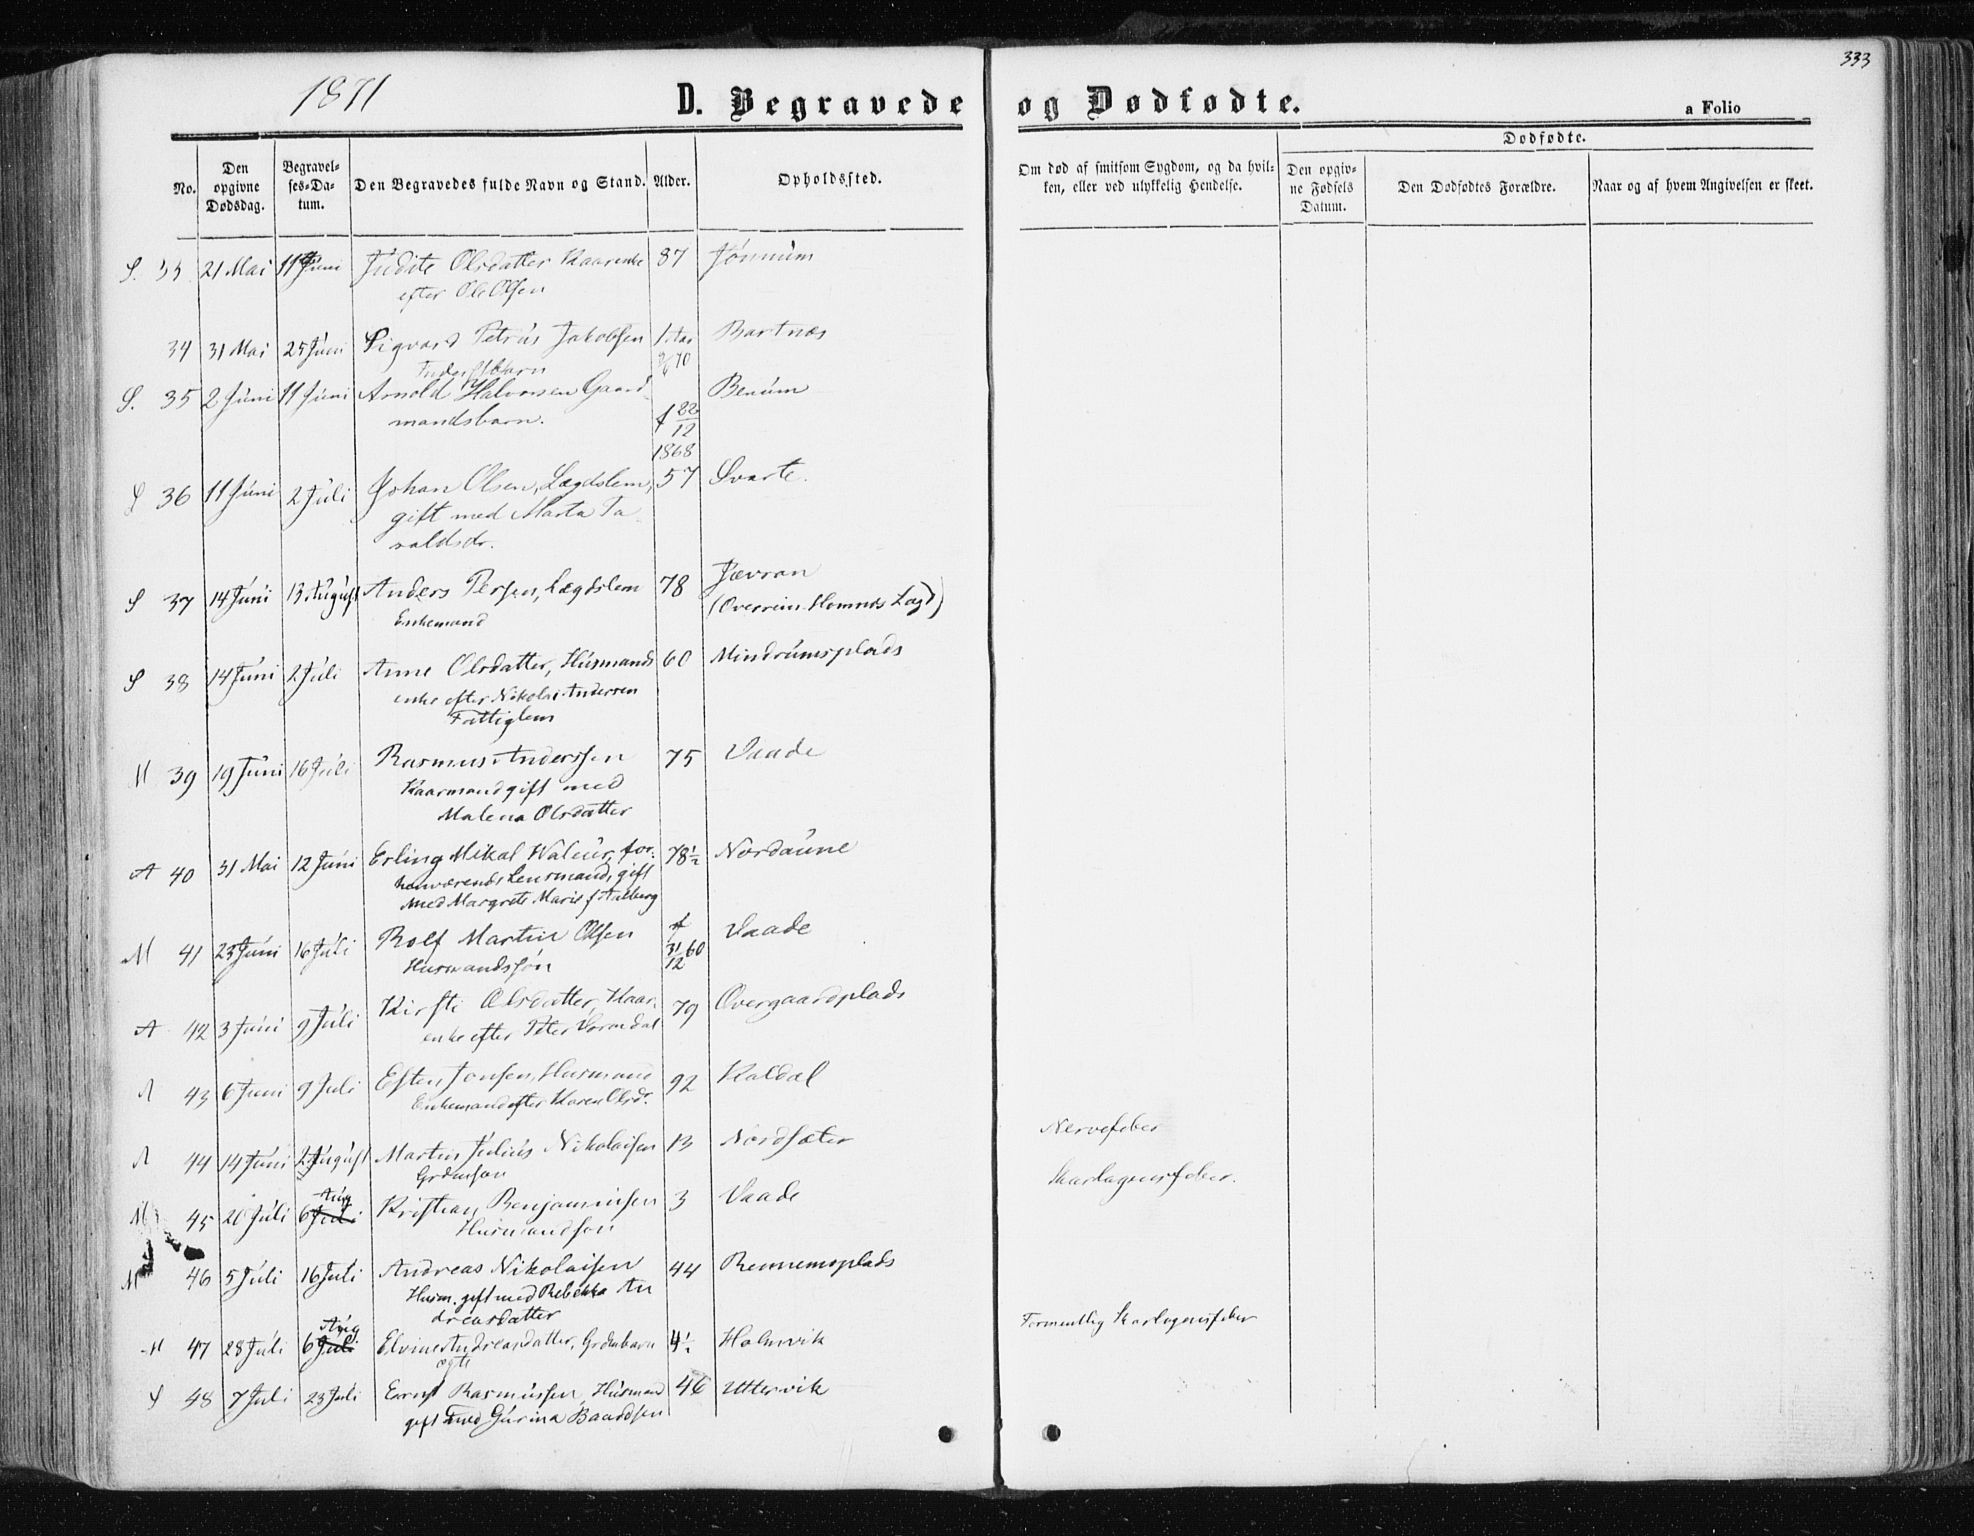 333
1871
D. Begravede og Dødfødte.
a Folio
No.
Den opgivne Dødsdag.
Begravelses-Datum.
Den Begravedes fulde Navn og Stand.
Alder.
Opholdssted.
Om død af smitsom Sygdom, og da hvilken, eller ved ulykkelig Hendelse.
Dødfødte.
Den opgivne Fødsels Datum.
Den Dødfødtes Forældre.
Naar og af hvem Angivelsen er skeet.
S. 33 21 Mai 11 Juni Judite Olsdatter Kaarenke 87
efter Ole Olsen
34 31 Mai 25 Juni Sigvard Petrus Jakobsen 1 Aar Bartnæs
S. 35 2 Juni 11 Juni Arnold Halvorsen Gaard Benum
mandsbarn. f 22/12 1868
S 36 11 Juni 2 Juli Johan Olsen, Lægdslem, 57 Svarte.
gift med Marta Ta
valdsdr.
S 37 14 Juni 13 August Anders Persen, Lægdslem 78 Jævran
Enkemand (Overrein-Homnes Lægd)
S 38 14 Juni 2 Juli Anne Olsdatter, Husmands 60 Mindrumsplads
enke efter Nikolai Andersen
Fattiglem
M 39 19 Juni 16 Juli Rasmus Anderssen 75 Vaade
Kaarmand gift med
Malena Olsdatter
A 40 31 Mai 12 Juni Erling Mikal Waleur, for- 78½ Nordaune
henværende Lensmand, gift
med Margrete Marie f Aalberg
M 41 23 Juni 16 Juli Rolf Martin Olsen f 31/12 60 Vaade
Husmandssøn
A 42 3 Juni 9 Juli Kirsti Olsdatter, Kaar- 79 Overgaardplads
enke efter Peter
A 43 6 Juni 9 Juli Esten Jonsen, Husmand 92 Kaldal
Enkemand efter Karen Olsdr.
A 44 14 Juni 2 August Martin Julius Nikolaisen 13 Nordsæter Nervefeber
Grdmsøn
M 45 20 Juli 6 Juli Aug Kristian Benjaminsen 3 Vaade Skarlagensfeber.
Husmandsøn
M 46 5 Juli 16 Juli Andreas Nikolaisen 44 Rennemsplads
Husm. gift med Rebekka An
dreasdatter
M 47 28 Juli 6 Juli Aug Elvine Andreasdatter, Grdmbarn 4½ Holmvik Formentlig Skarlagensfeber
ægte
S 48 7 Juli 23 Juli Ernst Rasmussen, Husmand 46 Uttervik
gift med Gurina Baardsen